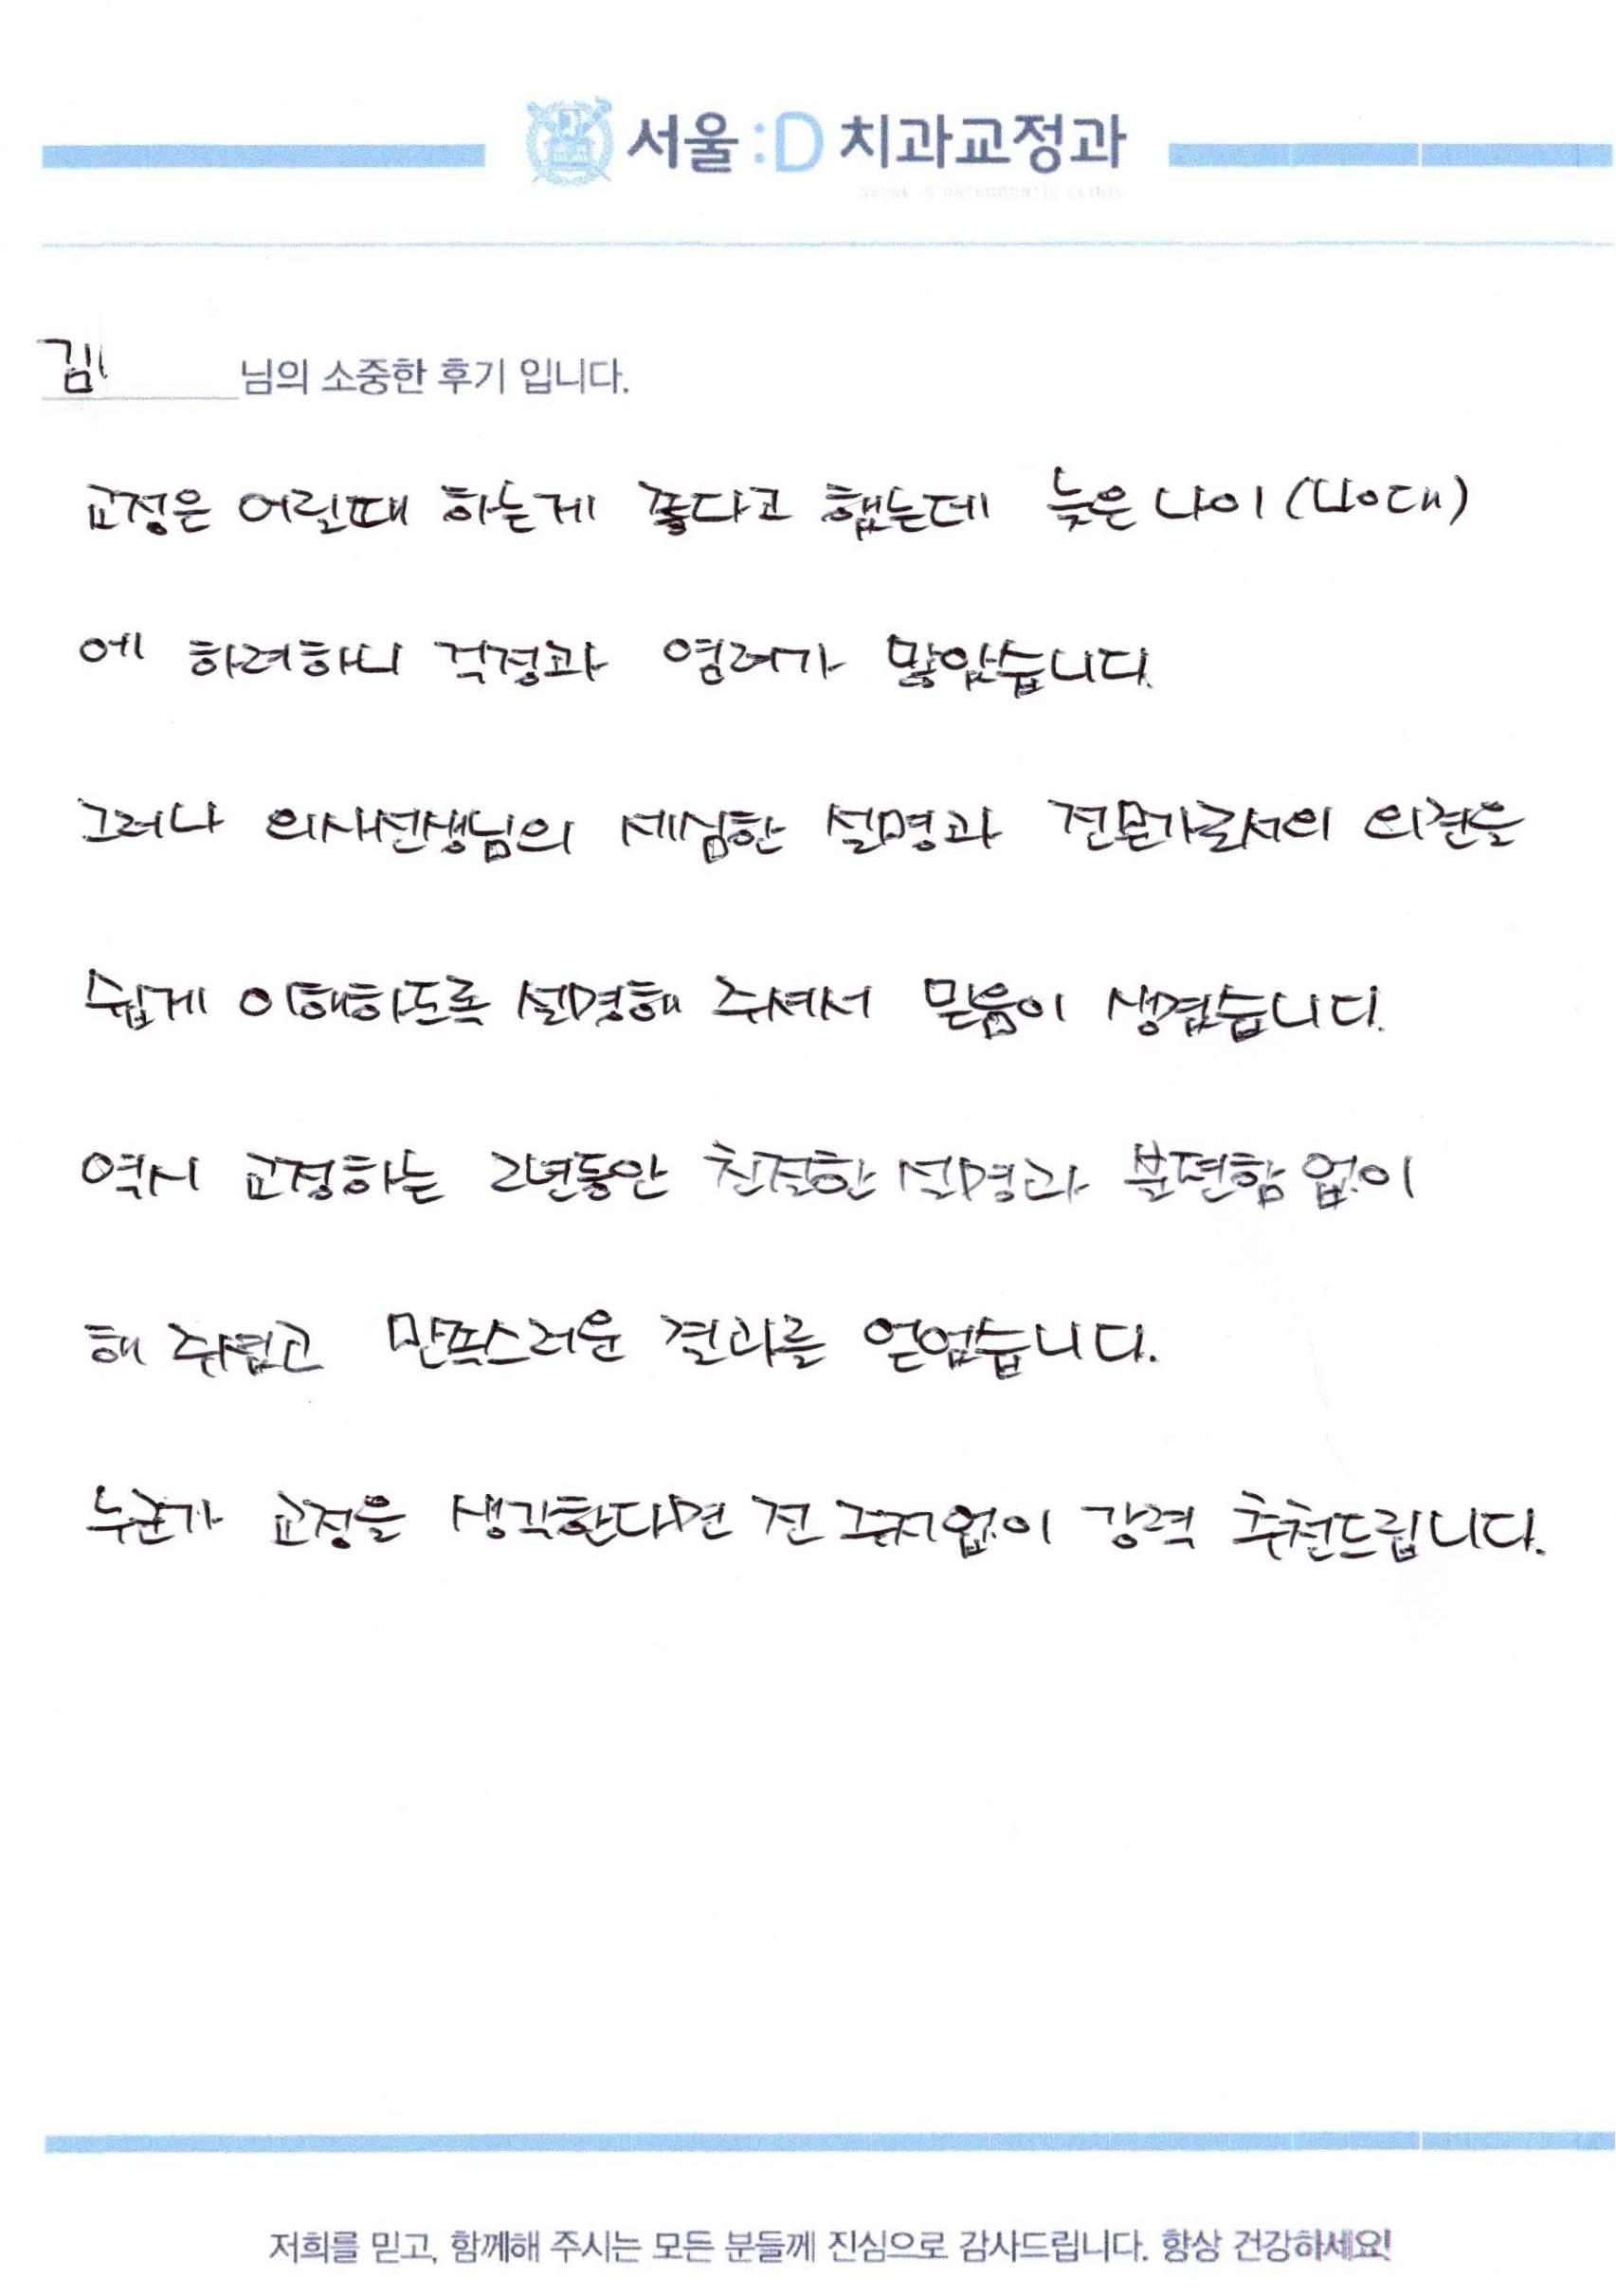 서울:D 치과교정과
SEOUL :D ORTHODONTIC CLINIC
김 님의 소중한 후기 입니다.
교정은 어릴때 하는게 좋다고 했는데 늦은 나이 (40대)
에 하려하니 걱정과 염려가 많았습니다.
그러나 의사선생님의 세심한 설명과 전문가로서의 의견을
쉽게 이해하도록 설명해 주셔서 믿음이 생겼습니다.
역시 교정하는 2년동안 친절한 설명과 불편함 없이
해 주셨고 만족스러운 결과를 얻었습니다.
누군가 교정을 생각한다면 전 주저없이 강력 추천드립니다.
저희를 믿고, 함께해 주시는 모든 분들께 진심으로 감사드립니다. 항상 건강하세요!